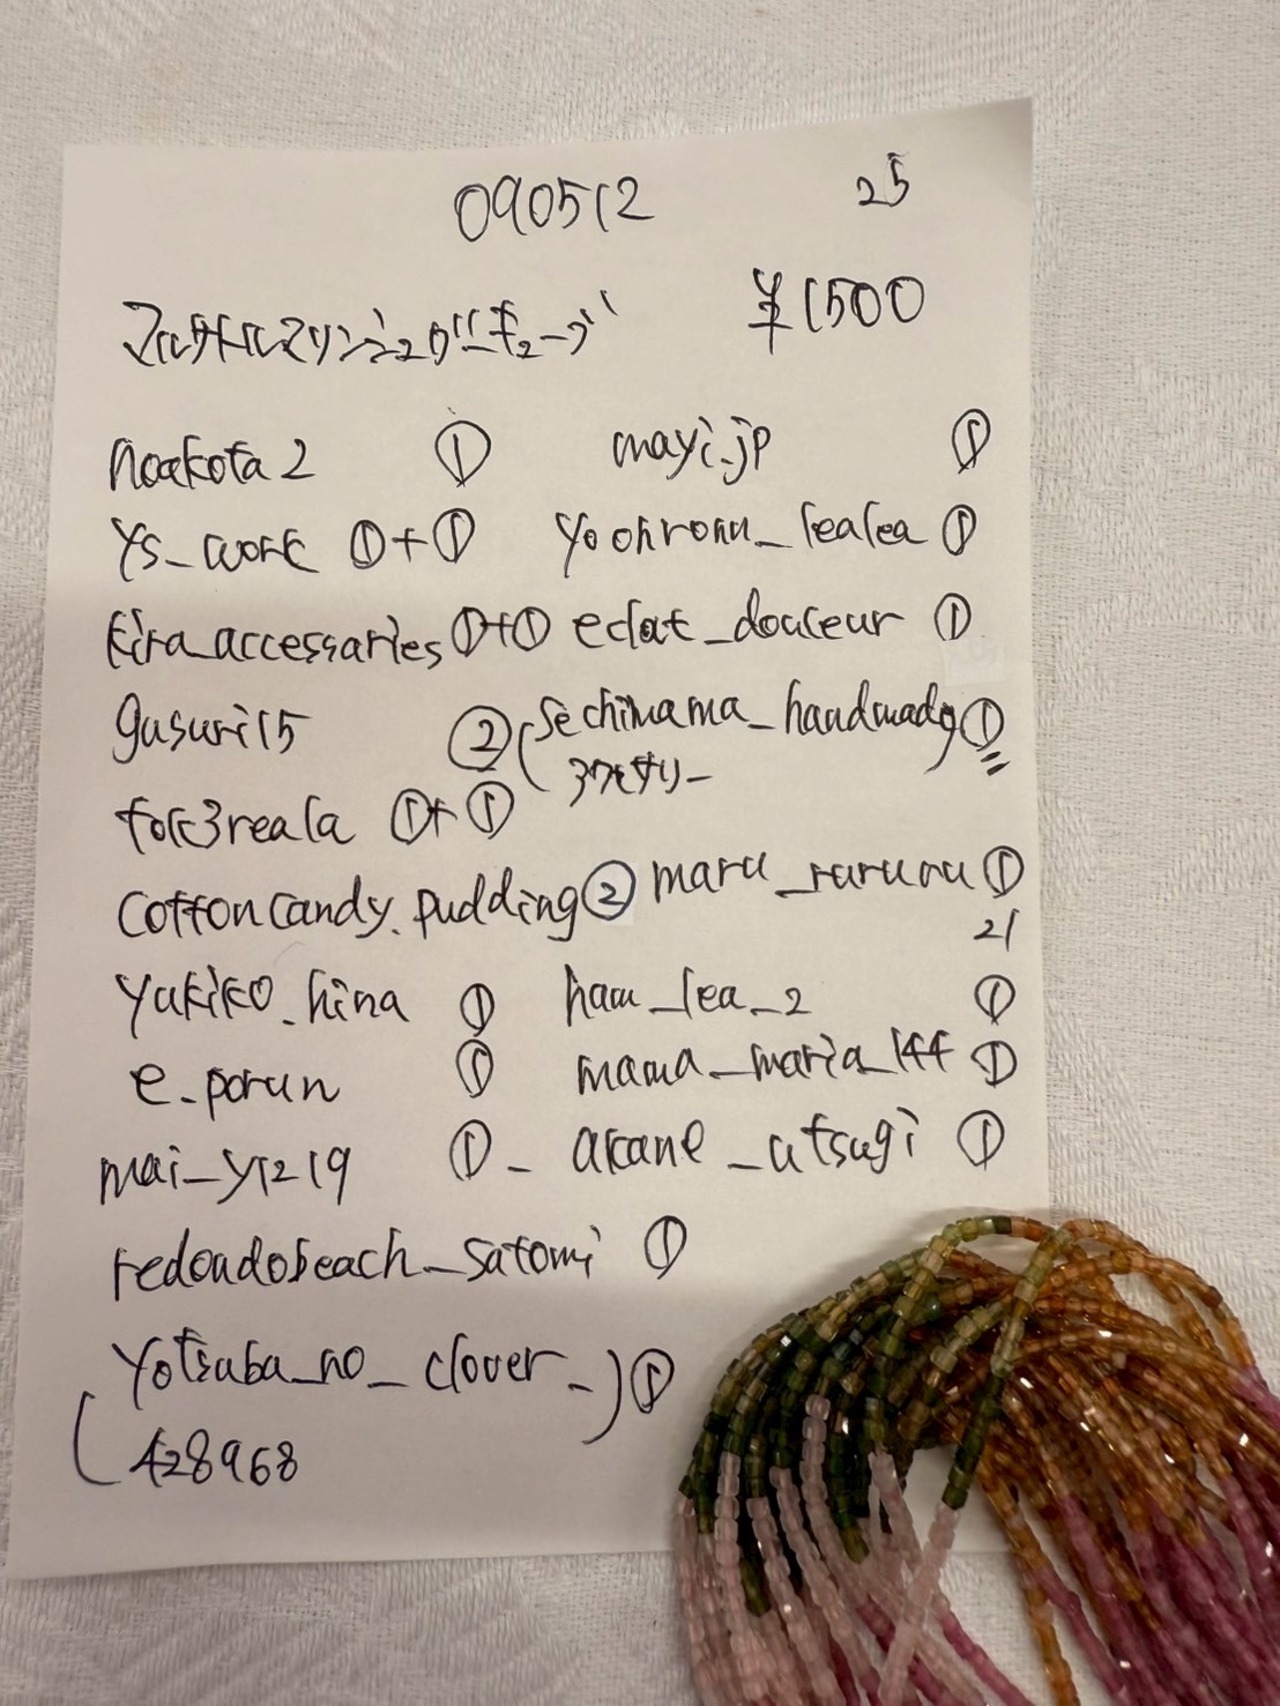 090512 25
マルチトルマリンジュグ ¥1500
noakota2 ① mayi.jp ①
ys_work ①+① yoohronu_lealea ①
kira_accessaries ①+① eclat_douceur ①
gusuri15 ② (sechimama_handmade) ①
tok3reala ①+①
cottoncandy.pudding ② maru_rururu ①
21
yukiko_hina ① hau_lea_2 ①
e_porun ① mama_maria_144 ①
mai_y1219 ① - akane_utsugi ①
redondobeach_satomi ①
(yotsuba_no_clover_) ①
428968